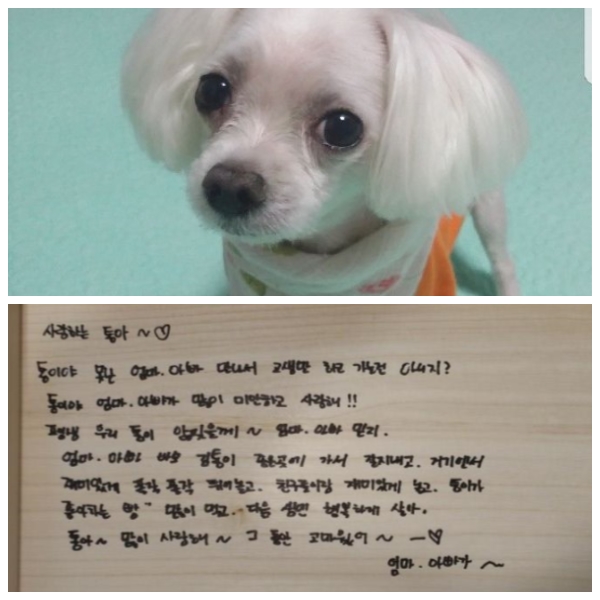 사랑하는 통아 ~♡
통이야 못난 엄마.아빠 만나서 고생만 하고 가는건 아니지?
통이야 엄마.아빠가 많이 미안하고 사랑해!!
평생 우리 통이 안잊을께~ 엄마.아빠 믿지.
엄마.아빠 이쁜 통이 좋은곳에 가서 잘지내고. 거기에서
재미있게 폴짝폴짝 뛰어놀고. 친구들이랑 재미있게 놀고. 통이가
좋아하는 빵 많이 먹고. 다음 생엔 행복하게 살아.
통아~ 많이 사랑해~ 그 동안 고마웠어~ ―♡
엄마.아빠가 ~